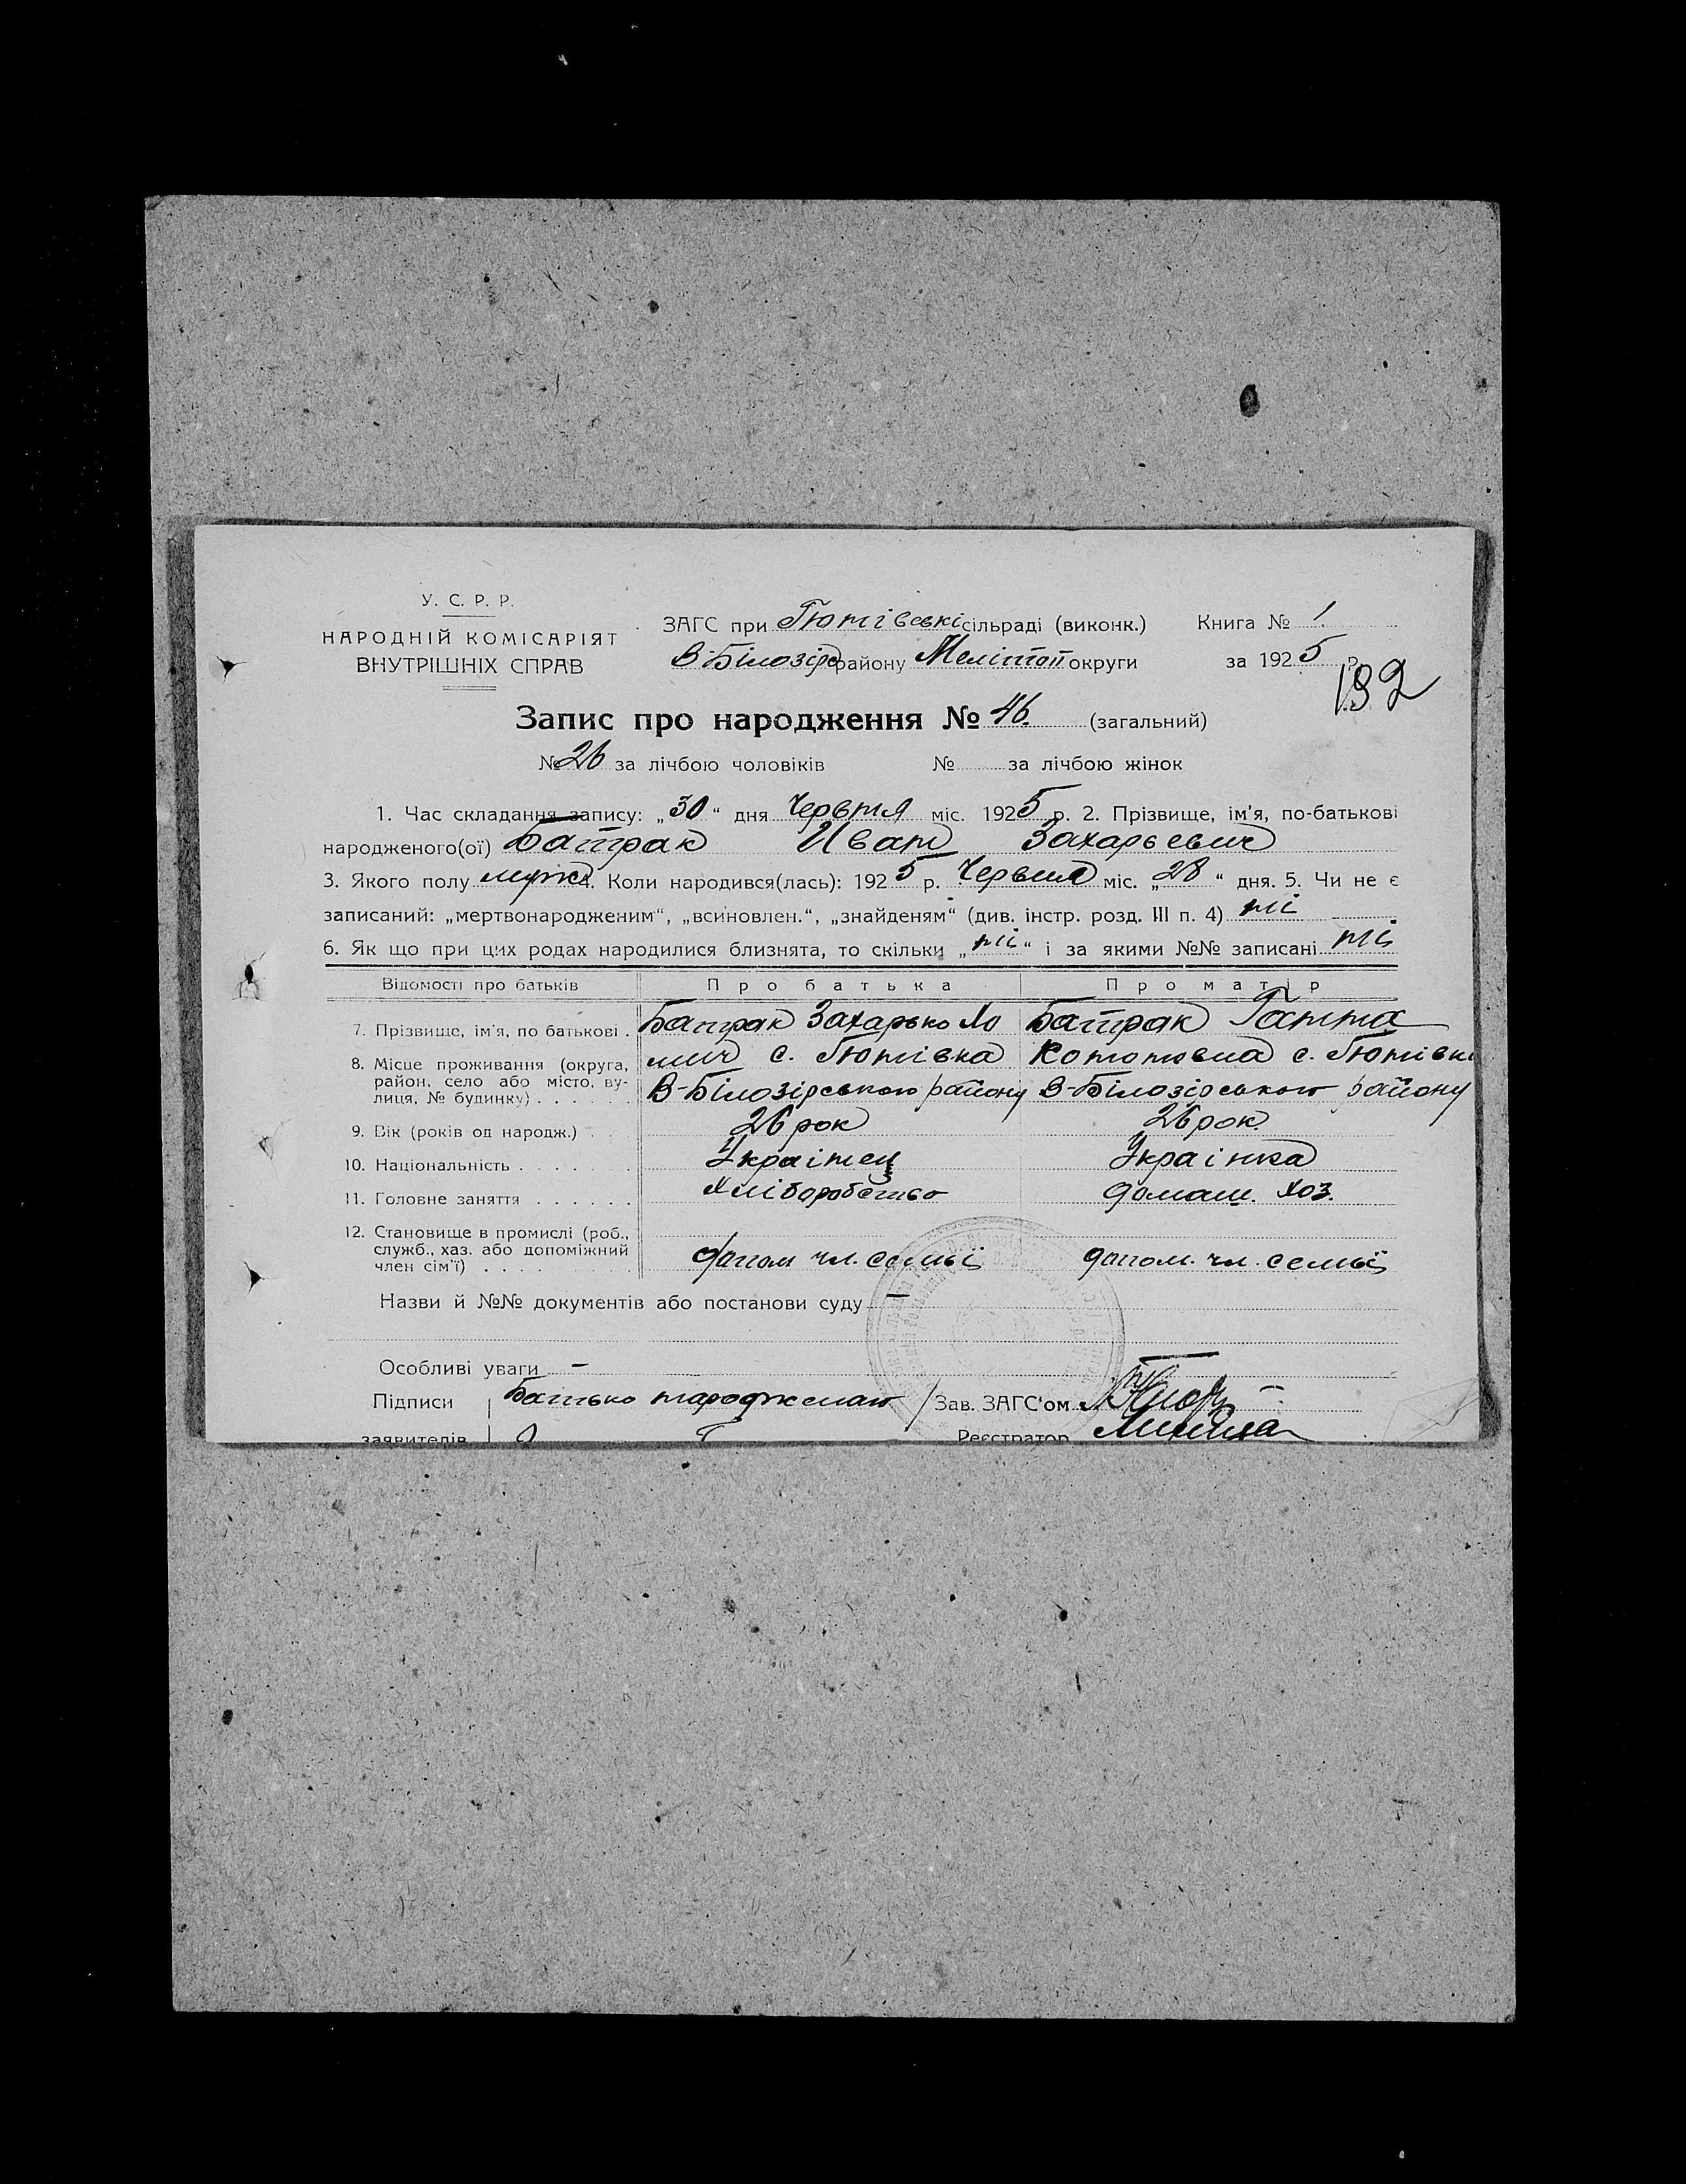 У. С. Р. Р.
НАРОДНІЙ КОМІСАРІЯТ
ВНУТРІШНІХ СПРАВ
ЗАГС при Гютівські сільраді (виконк.) Книга № 1
В-Білозір району Меліtoп округи за 1925 р.
192
Запис про народження № 46. (загальний)
№ 26 за лічбою чоловіків № за лічбою жінок
1. Час складання запису: „30“ дня Червня міс. 1925 р. 2. Прізвище, ім'я, по-батькові
народженого(ої) Батрак Иван Захарьевич
3. Якого полу мужс 4. Коли народився(лась): 1925 р. Червня міс. „28“ дня. 5. Чи не є
записаний: „мертвонародженим“, „всиновлен.“, „знайденям“ (див. інстр. розд. III п. 4) ні
6. Як що при цих родах народилися близнята, то скільки „ні“ і за якими №№ записані ні
Відомості про батьків Про батька Про матір
7. Прізвище, ім'я, по батькові . Батрак Захарько Батрак Ганна
8. Місце проживання (округа, район, село або місто, вулиця, № будинку) . . . . . . с. Гютівка с. Гютівка
В-Білозірського району В-Білозірського району
9. Вік (років од народж.) . . . 26 рок 26 рок.
10. Національність . . . . . Украінец Украінка
11. Головне заняття . . . . . . Хліборобство домаш. хоз.
12. Становище в промислі (роб., служб., хаз. або допоміжний член сім'ї) . . . . допом чл. семьї допом. чл. семьї
Назви й №№ документів або постанови суду —
Особливі уваги –
Підписи Батько народженаго Зав. ЗАГС'ом
заявителів Реєстратор